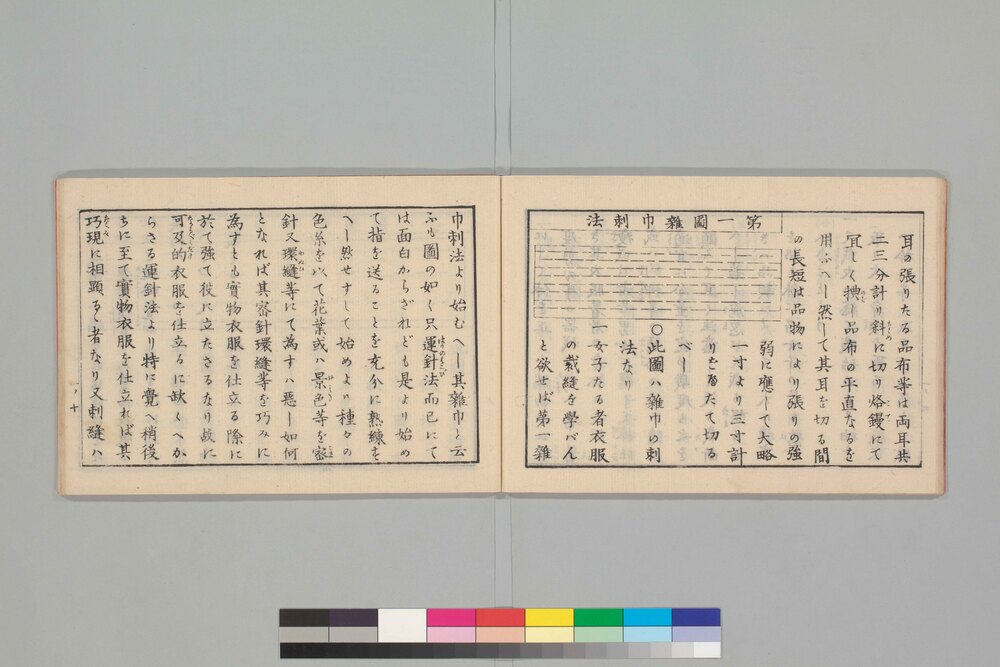 耳の張りたる品布等は両耳共
二三分計り斜に切り烙鏝にて
冗し又擵し品布の平直なるを
用ふへし然して其耳を切る間
の長短は品物により張りの強
弱に應して大略
一寸より三寸計
りをへだたて切る
べし
〇此圖ハ雜巾の刺
法なり
第一圖雜巾刺法
一女子たる者衣服
の裁縫を學バん
と欲せば第一雜
巾刺法より始むへし其雜巾と云
ふも圖の如く只運針法而已にて
は面白からざれども是より始め
て指を送ることを充分に熟練す
へし然せすして始めより種々の
色糸を以て花葉或ハ景色等を密
針又環縫等にて為すハ惡し如何
となれば其密針環縫等を巧みに
為すとも實物衣服を仕立る際に
於て強て役に立たさるなり故に
可及的衣服を仕立るに缺くへか
らさる運針法より特に覺へ稍後
ちに至て實物衣服を仕立れば其
巧現に相顯るゝ者なり又刺縫ハ
十